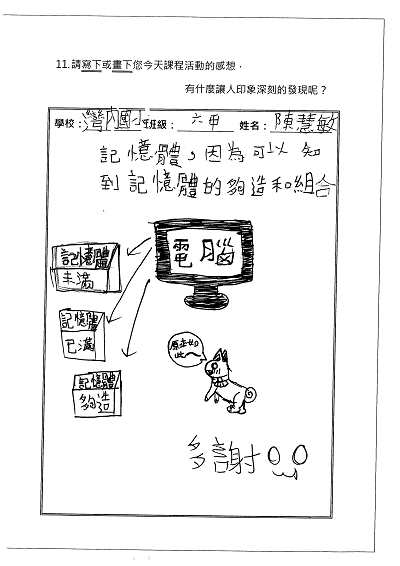 11.請寫下或畫下您今天課程活動的感想，
有什麼讓人印象深刻的發現呢？
學校：灣內國小 班級：六甲 姓名：陳慧敏
記憶體，因為可以知
到記憶體的夠造和組合
電腦
記憶體
未滿
記憶體
已滿
記憶體
夠造
原來如
此～
多謝